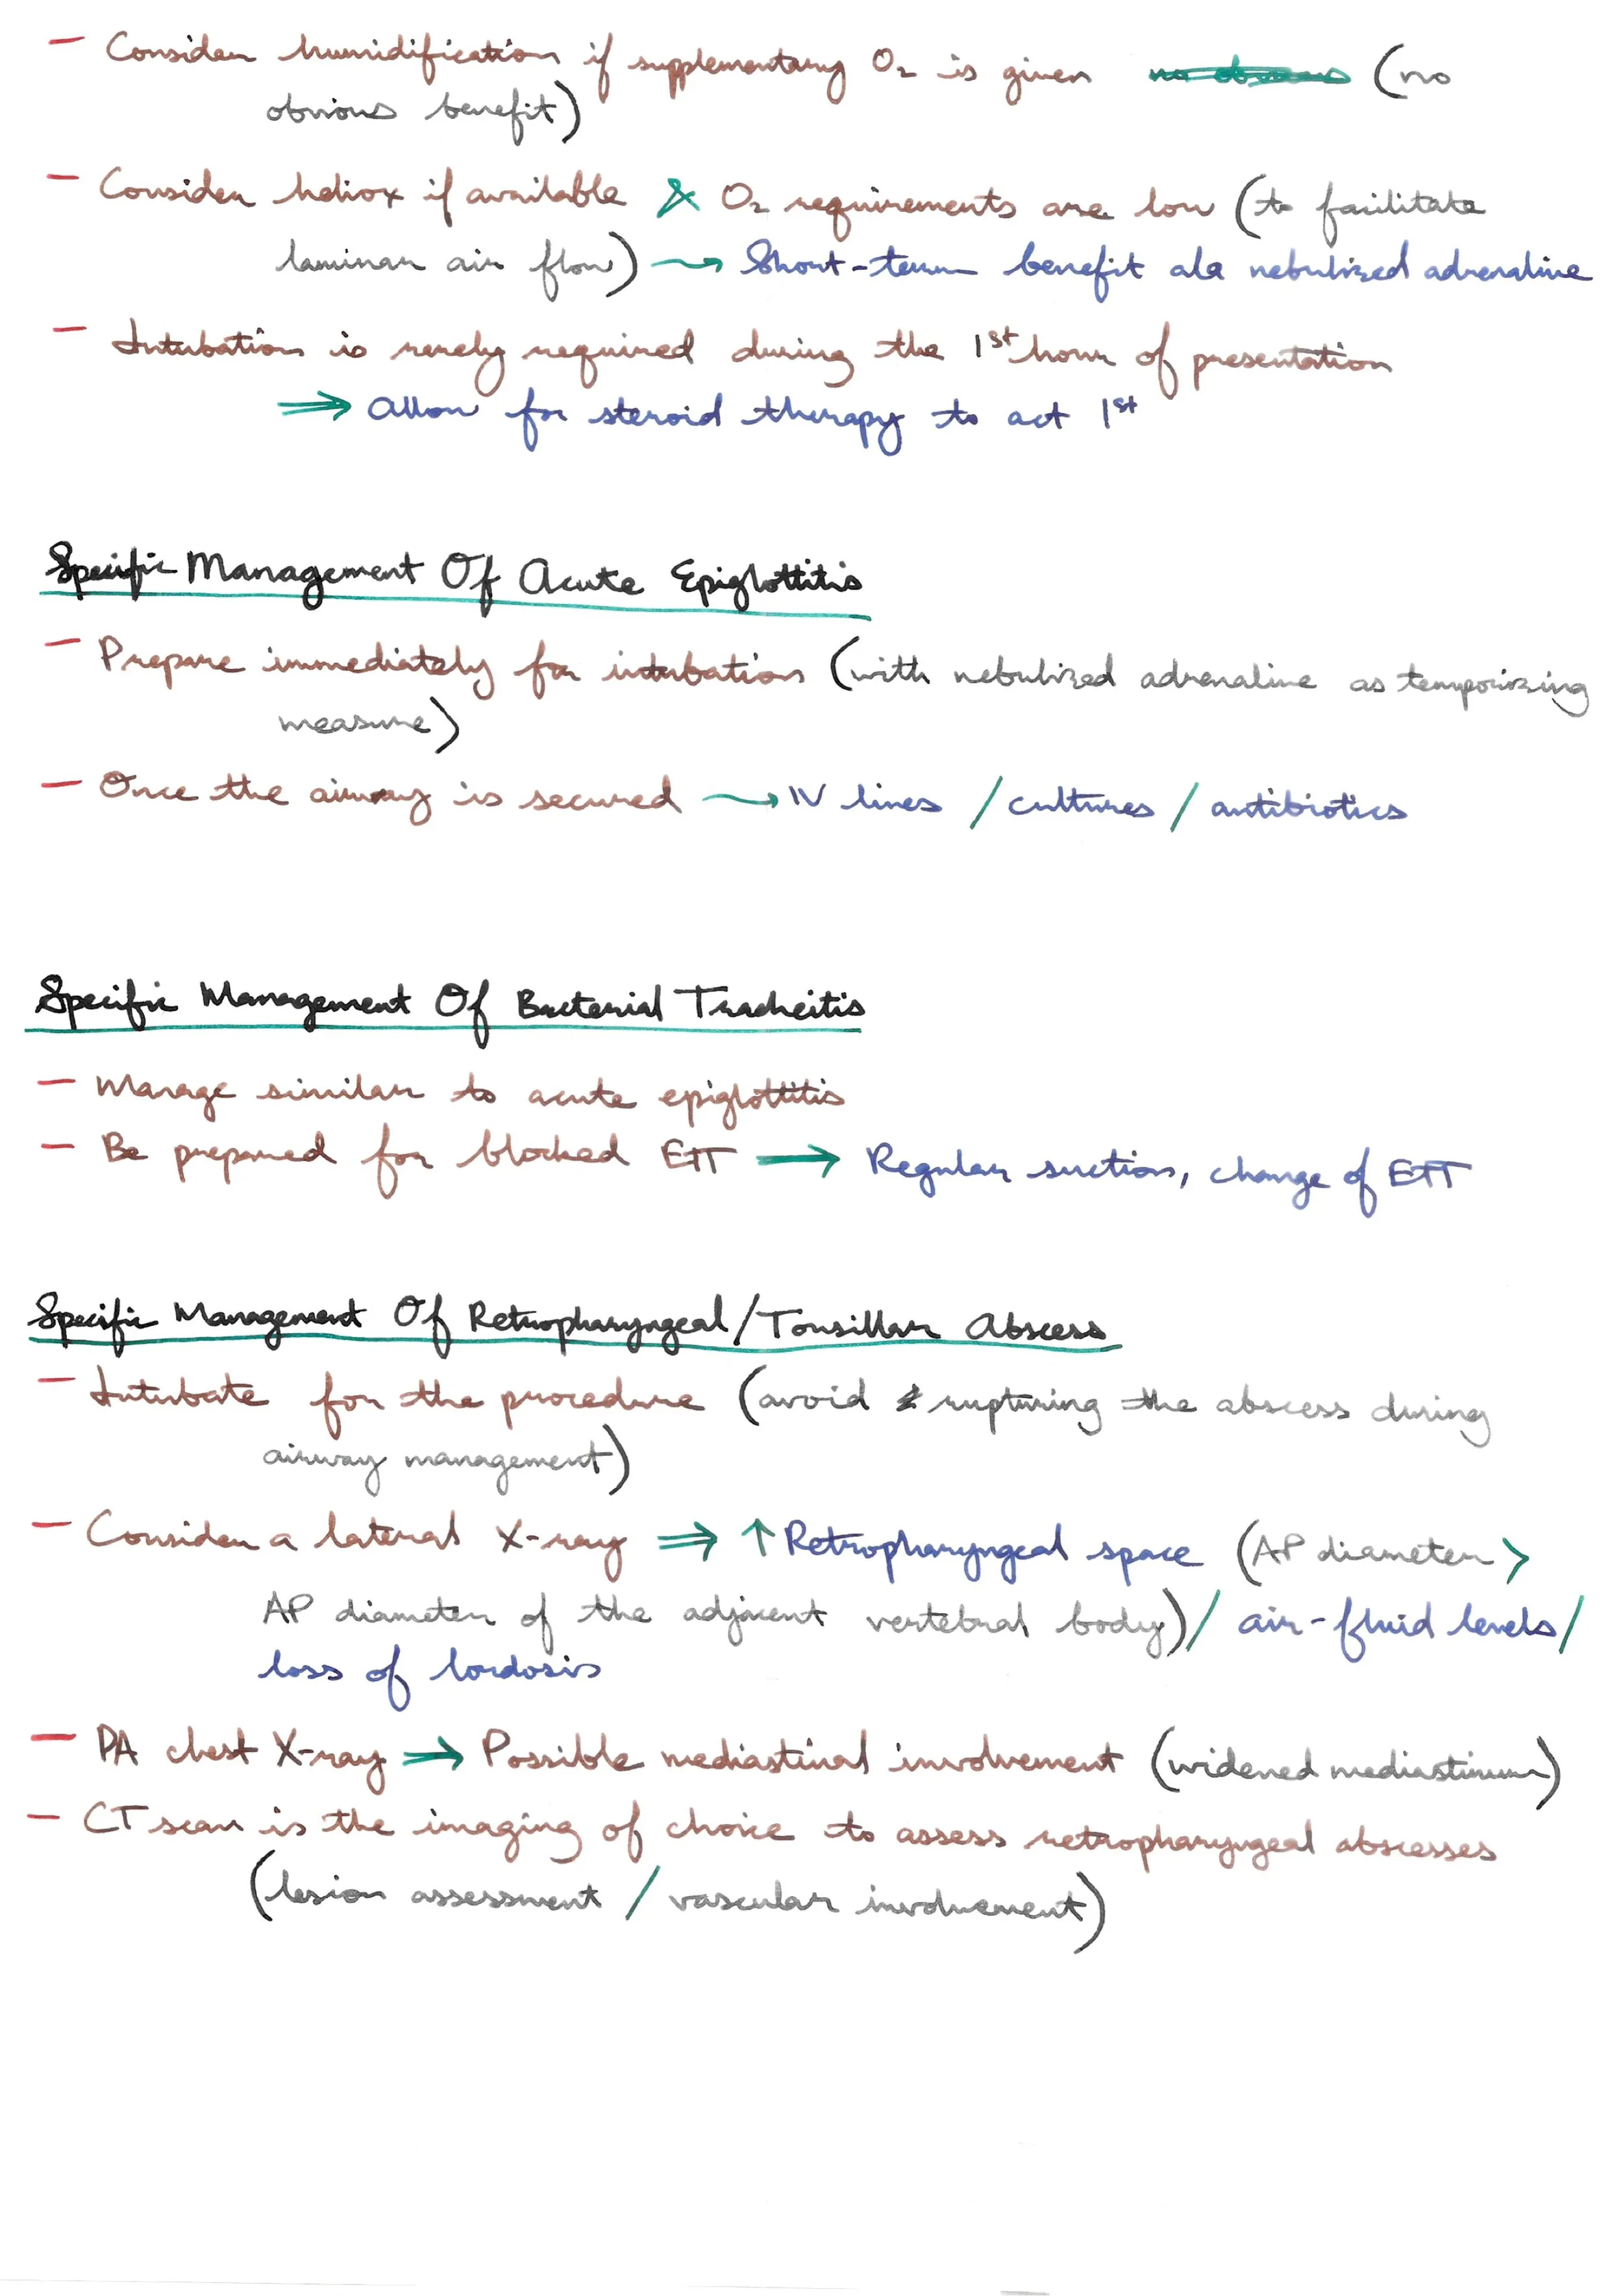 - Consider humidification if supplementary O₂ is given (no
obvious benefit)
- Consider heliox if available & O₂ requirements are low (to facilitate
laminar air flow) → Short-term benefit ala nebulized adrenaline
- Intubation is rarely required during the 1st hour of presentation
⇒ Allow for steroid therapy to act 1st
Specific Management Of Acute Epiglottitis
- Prepare immediately for intubation (with nebulized adrenaline as temporizing
measure)
- Once the airway is secured → IV lines / cultures / antibiotics
Specific Management Of Bacterial Tracheitis
- Manage similar to acute epiglottitis
- Be prepared for blocked ETT → Regular suction, change of ETT
Specific Management Of Retropharyngeal/Tonsillar Abscess
- Intubate for the procedure (avoid rupturing the abscess during
airway management)
- Consider a lateral X-ray ⇒ ↑ Retropharyngeal space (AP diameter >
AP diameter of the adjacent vertebral body) / air-fluid levels /
loss of lordosis
- PA chest X-ray ⇒ Possible mediastinal involvement (widened mediastinum)
- CT scan is the imaging of choice to assess retropharyngeal abscesses
(lesion assessment / vascular involvement)